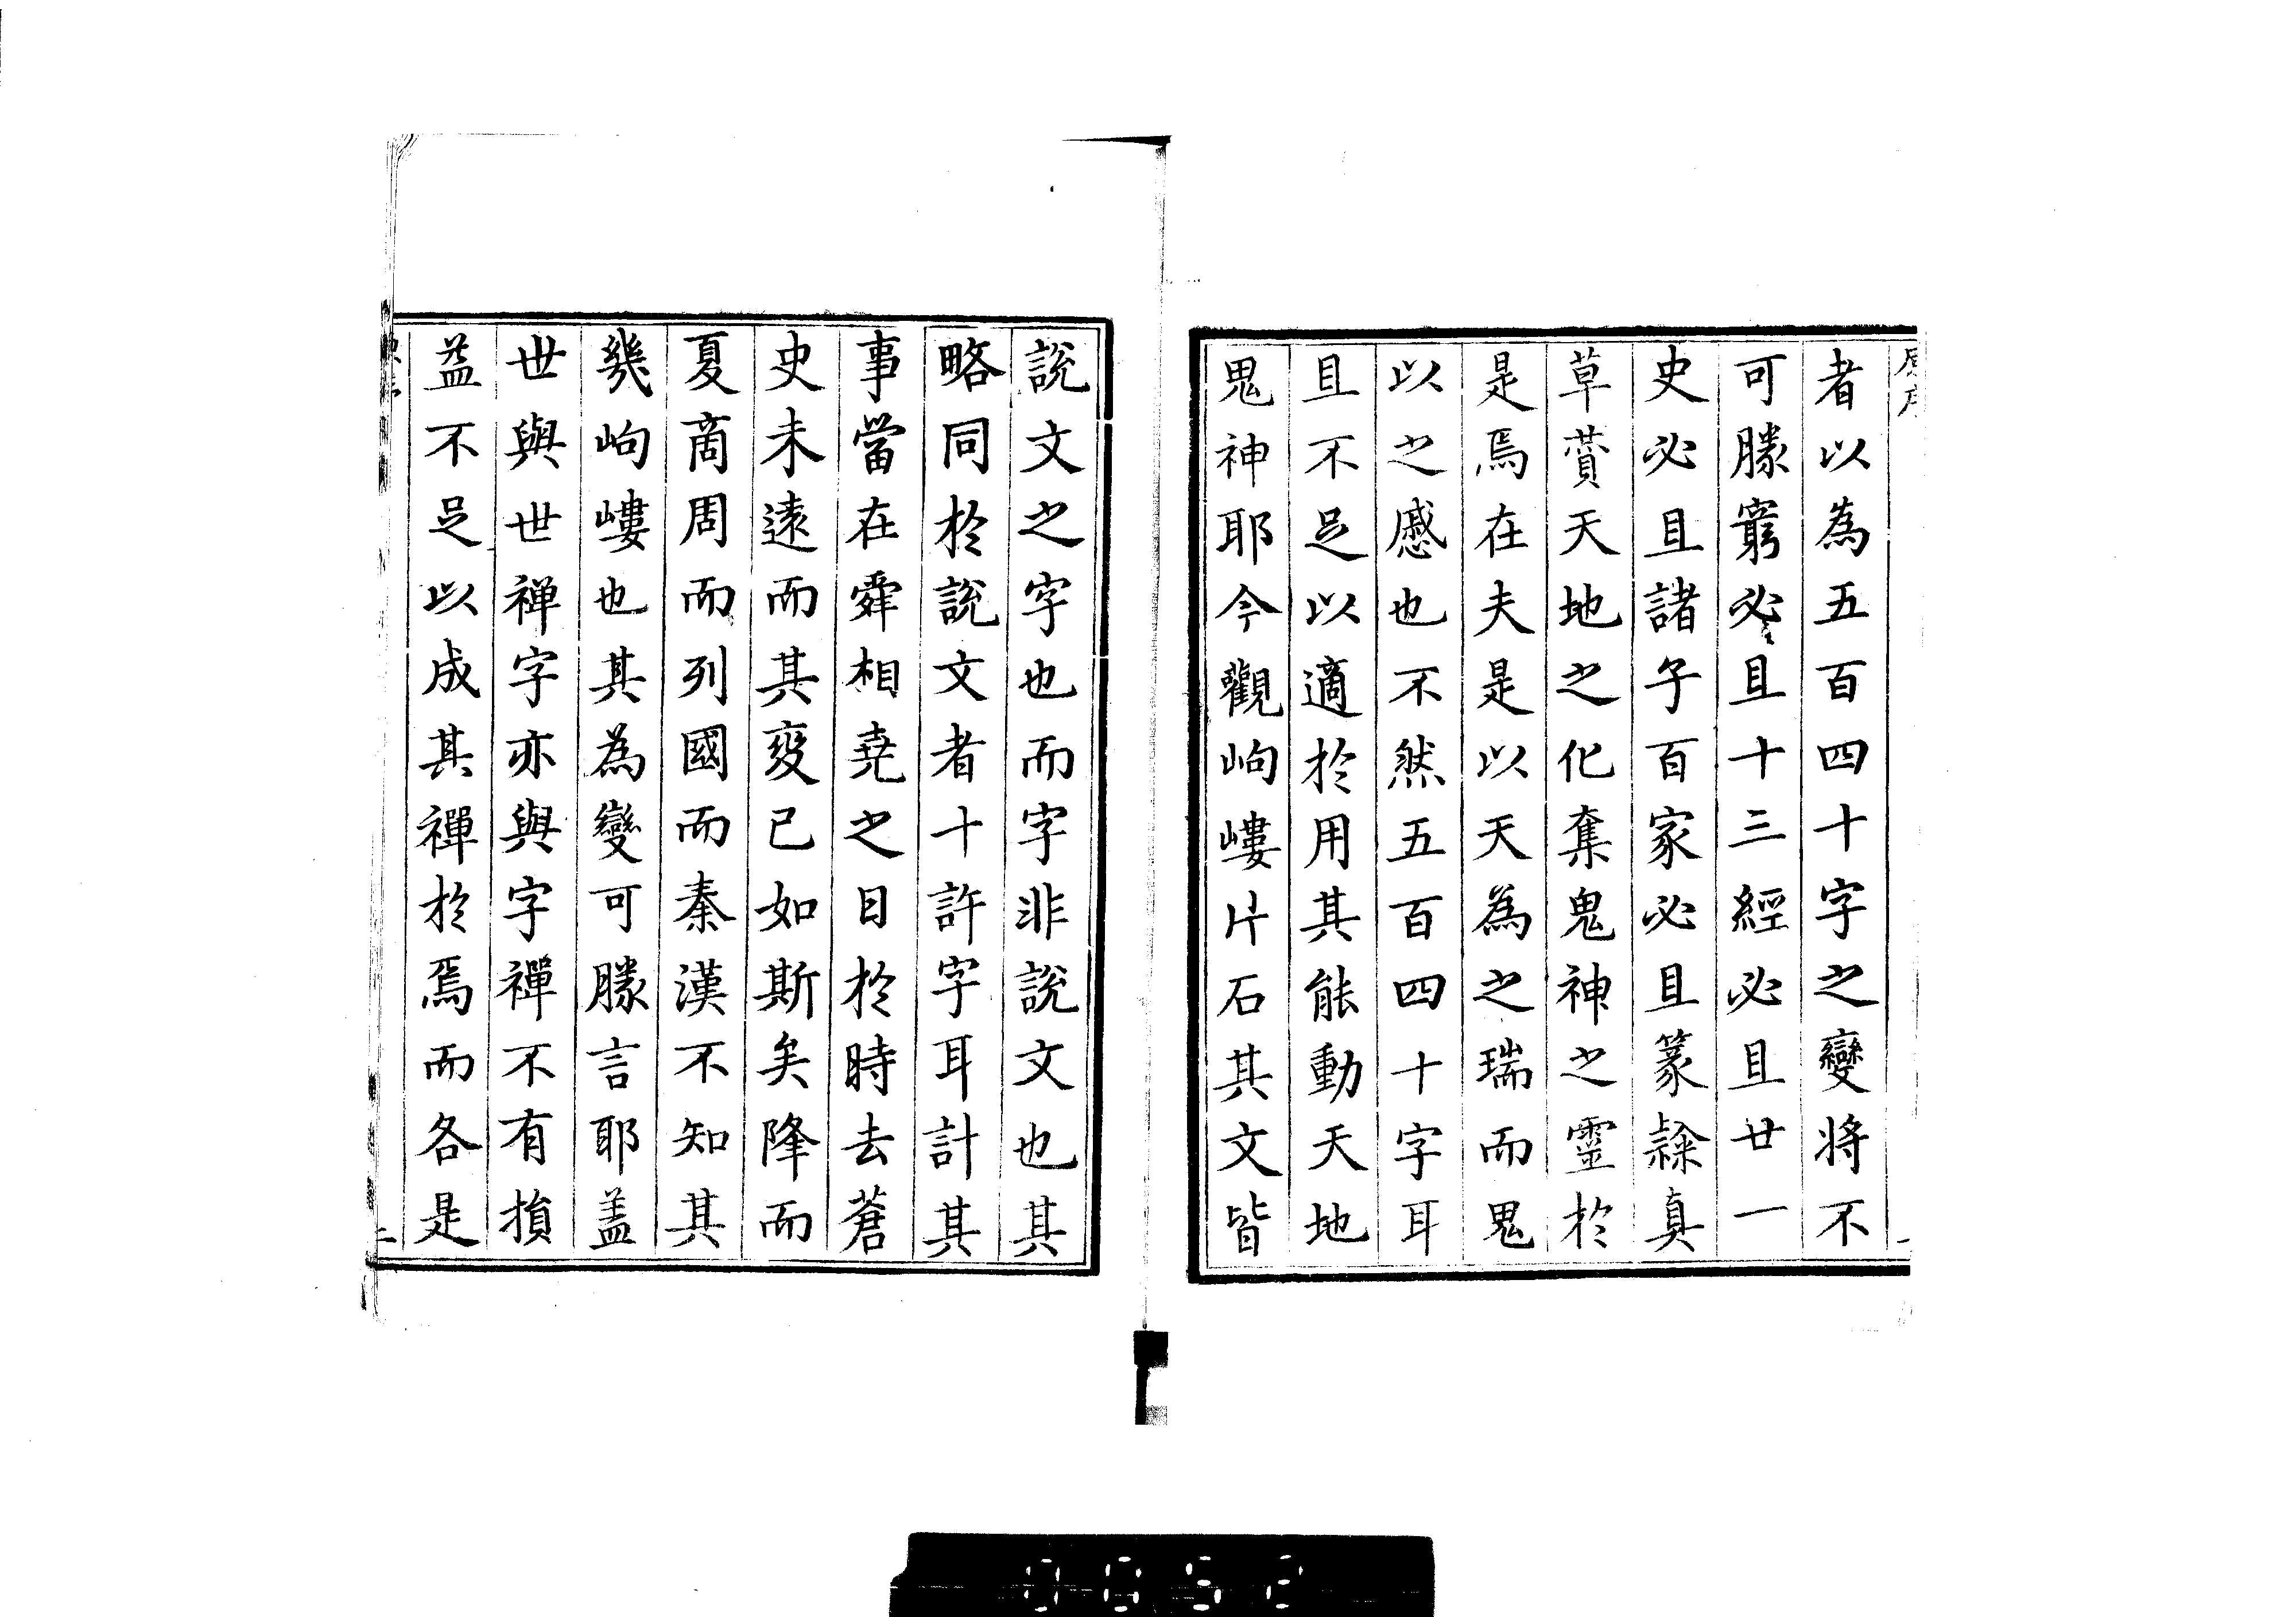 者以為五百四十字之變將不
可勝窮必且十三經必且廿一
史必且諸子百家必且篆繇真
草贊天地之化奪鬼神之靈於
是焉在夫是以天為之瑞而鬼
以之慼也不然五百四十字耳
且不足以適於用其能動天地
鬼神耶今觀岣嶁片石其文皆
說文之字也而字非說文也其
略同於說文者十許字耳計其
事當在舜相堯之日於時去蒼
史未遠而其變已如斯矣降而
夏商周而列國而秦漢不知其
幾岣嶁也其為變可勝言耶盖
世與世禅字亦與字禪不有損
益不足以成其禪於焉而各是